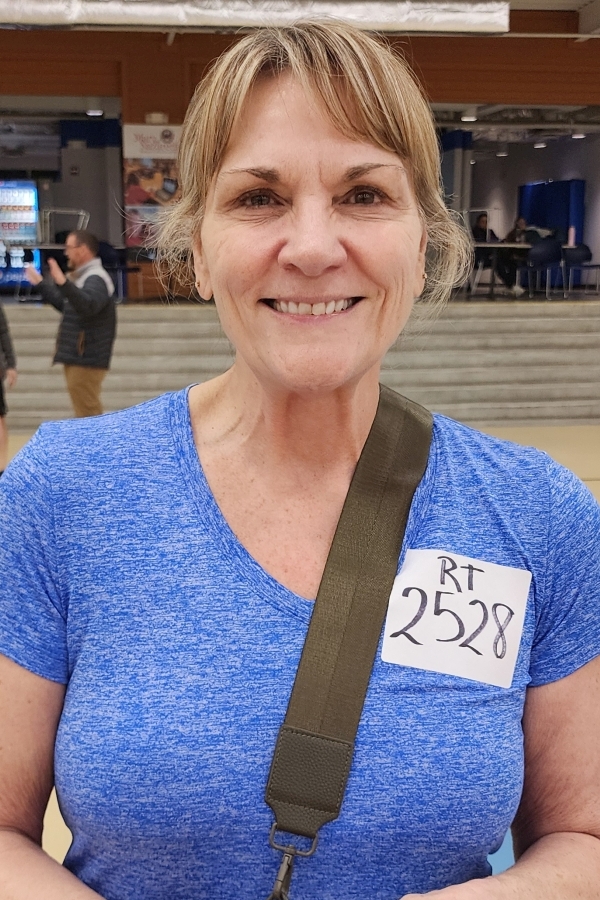 RT
2528